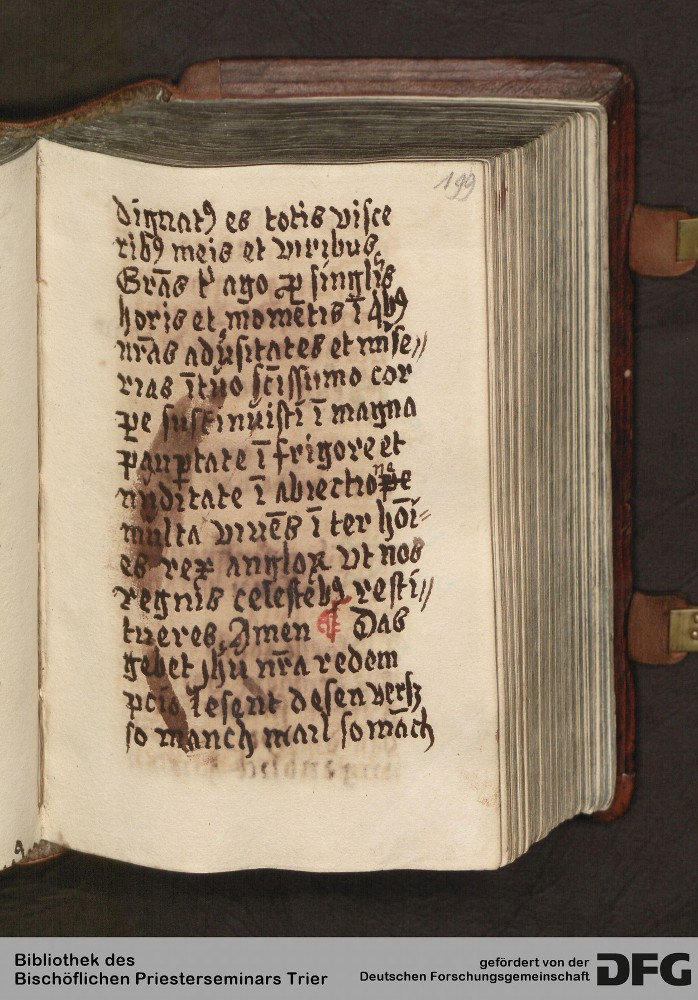 199
dignatꝰ es totis visce
ribꝫ meis et viribus
Grās t' ago ꝑ singl'is
horis et momētis ī qbꝫ
nrās adu'sitates et mise//
rias ītuo scīssimo cor
pe sustinuisti ī magna
paup̄tate ī frigore et
nuditate ī abiectione
multa viuēs ī ter hoī=
es rex angloꝝ vt nos
regnis celestibꝫ resti//
tueres Amen ¶ Das
gebet jhū nrā redem
pcio lesent desen versz
so manch mail so māch
Bibliothek des
Bischöflichen Priesterseminars Trier
gefördert von der
Deutschen Forschungsgemeinschaft
DFG